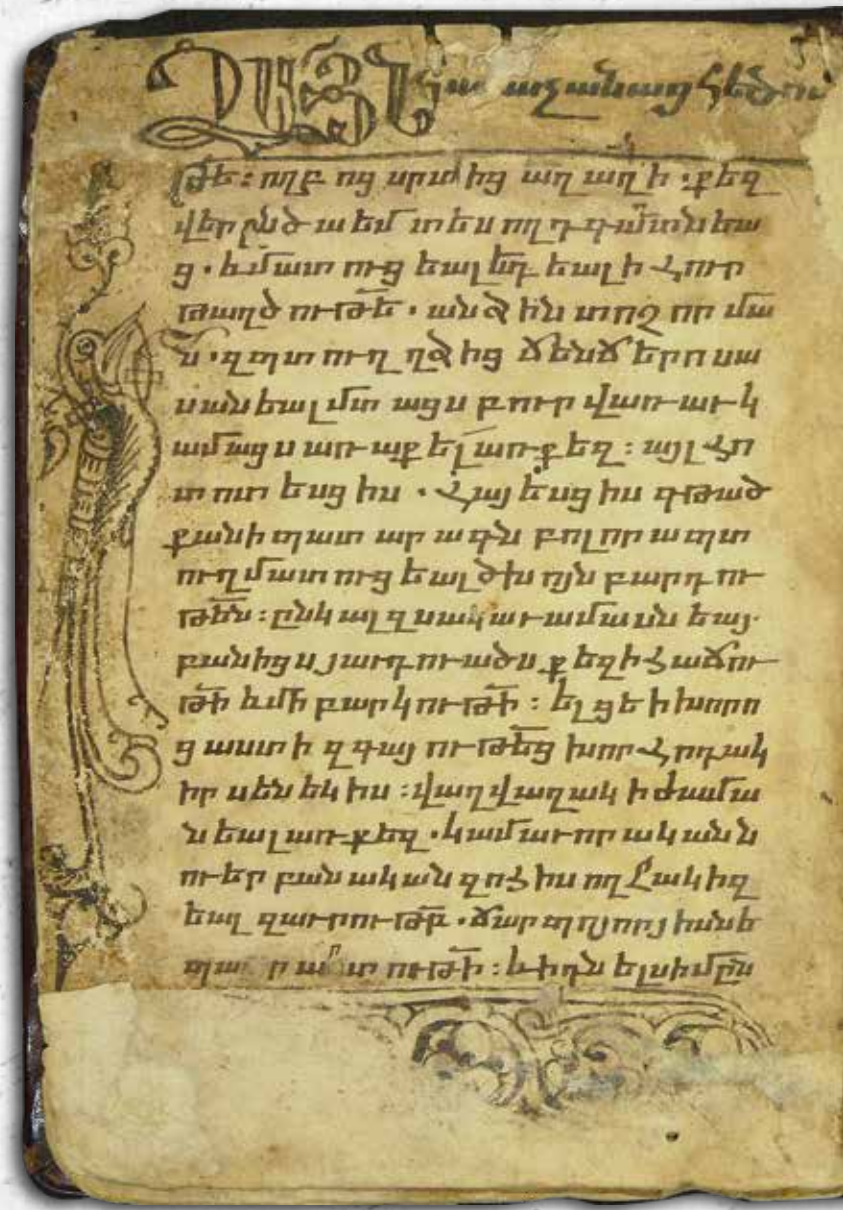 Ձայն հառաչանաց հեծու
թե: ողբ ոց սրտից աղաղի. քեզ
վերընծաեմ տեսողդ գաղտնեա
ց. եւ մատուցեալ եդեալ ի հուր
թաղծութե. անձին տոչորմա
ն. զպտուղ ղձից ճենճերո սա
սանեալ մտացս բուրվառաւ կ
ամացս առաքել առ քեզ: այլ հո
տոտեսցիս. հայեսցիս գթած
քանի պատարագն բոլորապտ
ուղ մատուցեալ ծխոյն բարդու
թեն: ընկալ զսակաւամասնեայ
բանիցս յաւդուածս քեզ ի հաճու
թի եւ մի բարկութի: ելցե ի խորո
ց աստի զգայութեց խորհրդակ
իր սենեկիս: վաղվաղակի ժամա
նեալ առ քեզ. կամաւորական ն
ուեր բանական զոհիս ողջակիզ
եալ զաւրութբ. ճարպոյ որ յիսն է
պարարտութի: